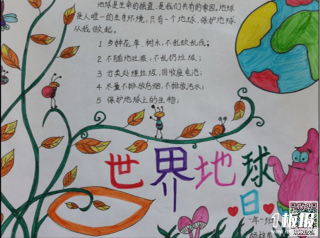 地球是生命的摇篮,是我们共有的家园,地球
是人唯一的生存环境,只有一个地球,保护地球
从我做起。
1 多种花、草、树木,不乱砍乱伐。
2 不随地吐痰,不乱扔垃圾;
3 分类处理垃圾,回收废电池;
4 尽量不排放乌烟,不排放污水;
5 保护地球上的生物;
世界地球
日
板报